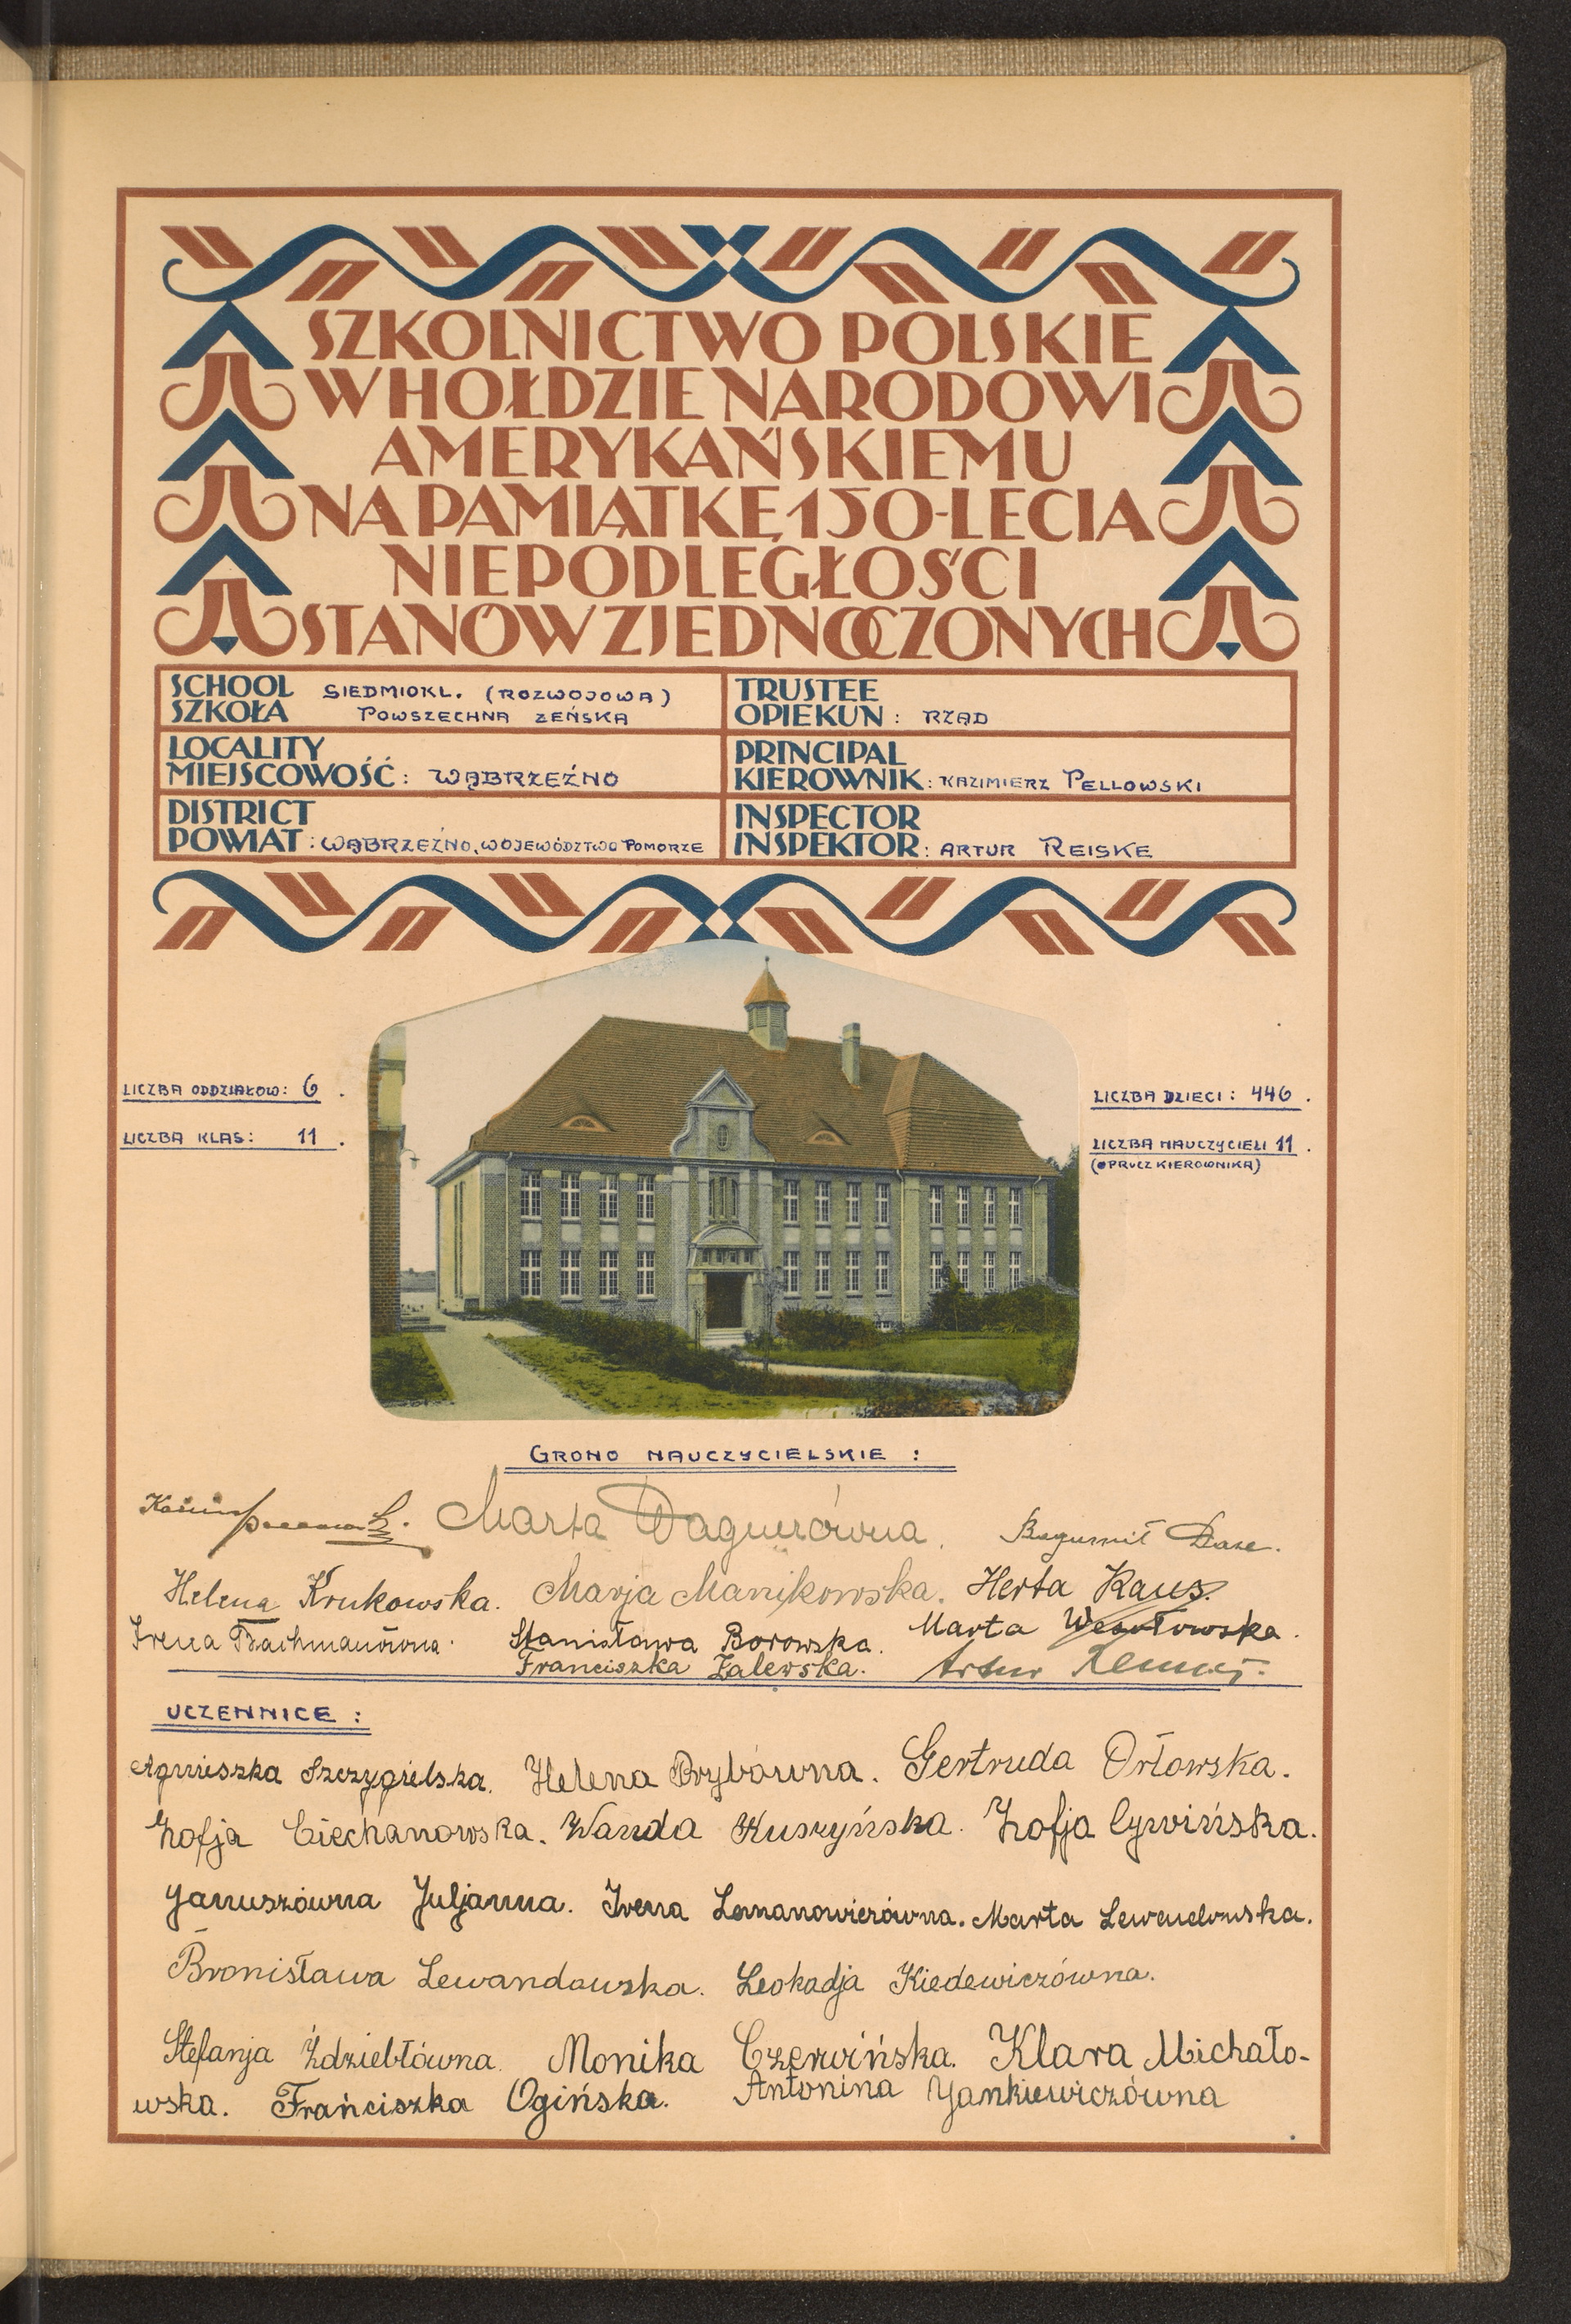 SZKOLNICTWO POLSKIE
W HOŁDZIE NARODOWI
AMERYKAŃSKIEMU
NA PAMIĄTKĘ 150-LECIA
NIEPODLEGŁOŚCI
STANÓW ZJEDNOCZONYCH
SCHOOL
SZKOŁA SIEDMIOKL. (ROZWOJOWA)
POWSZECHNA ŻEŃSKA
TRUSTEE
OPIEKUN: RZĄD
LOCALITY
MIEJSCOWOŚĆ: WĄBRZEŹNO
PRINCIPAL
KIEROWNIK: KAZIMIERZ PELLOWSKI
DISTRICT
POWIAT: WĄBRZEŹNO, WOJEWÓDZTWO POMORZE
INSPECTOR
INSPEKTOR: ARTUR REISKE
LICZBA ODDZIAŁOW: 6.
LICZBA KLAS: 11.
LICZBA DZIECI: 446.
LICZBA NAUCZYCIELI 11.
(OPRUCZ KIEROWNIKA)
GRONO NAUCZYCIELSKIE:
Marta Wagnerówna. Bogumił
Helena Krukowska. Marja Manikowska. Herta Raus.
Irena Bachmanówna. Stanisława Borowska. Marta Wesołowska.
Franciszka Zalewska. Artur
UCZENNICE:
Agnieszka Szczygielska. Helena Grybówna. Gertruda Orłowska.
Zofja Ciechanowska. Wanda Kuszyńska. Zofja Cywińska.
Januszówna Juljanna. Irena Lemanowiczówna. Marta Lewandowska.
Bronisława Lewandowska. Leokadja Kiedewiczówna.
Stefanja Żdziebłówna. Monika Czerwińska. Klara Michało-
wska. Frańciszka Ogińska. Antonina Jankiewiczówna